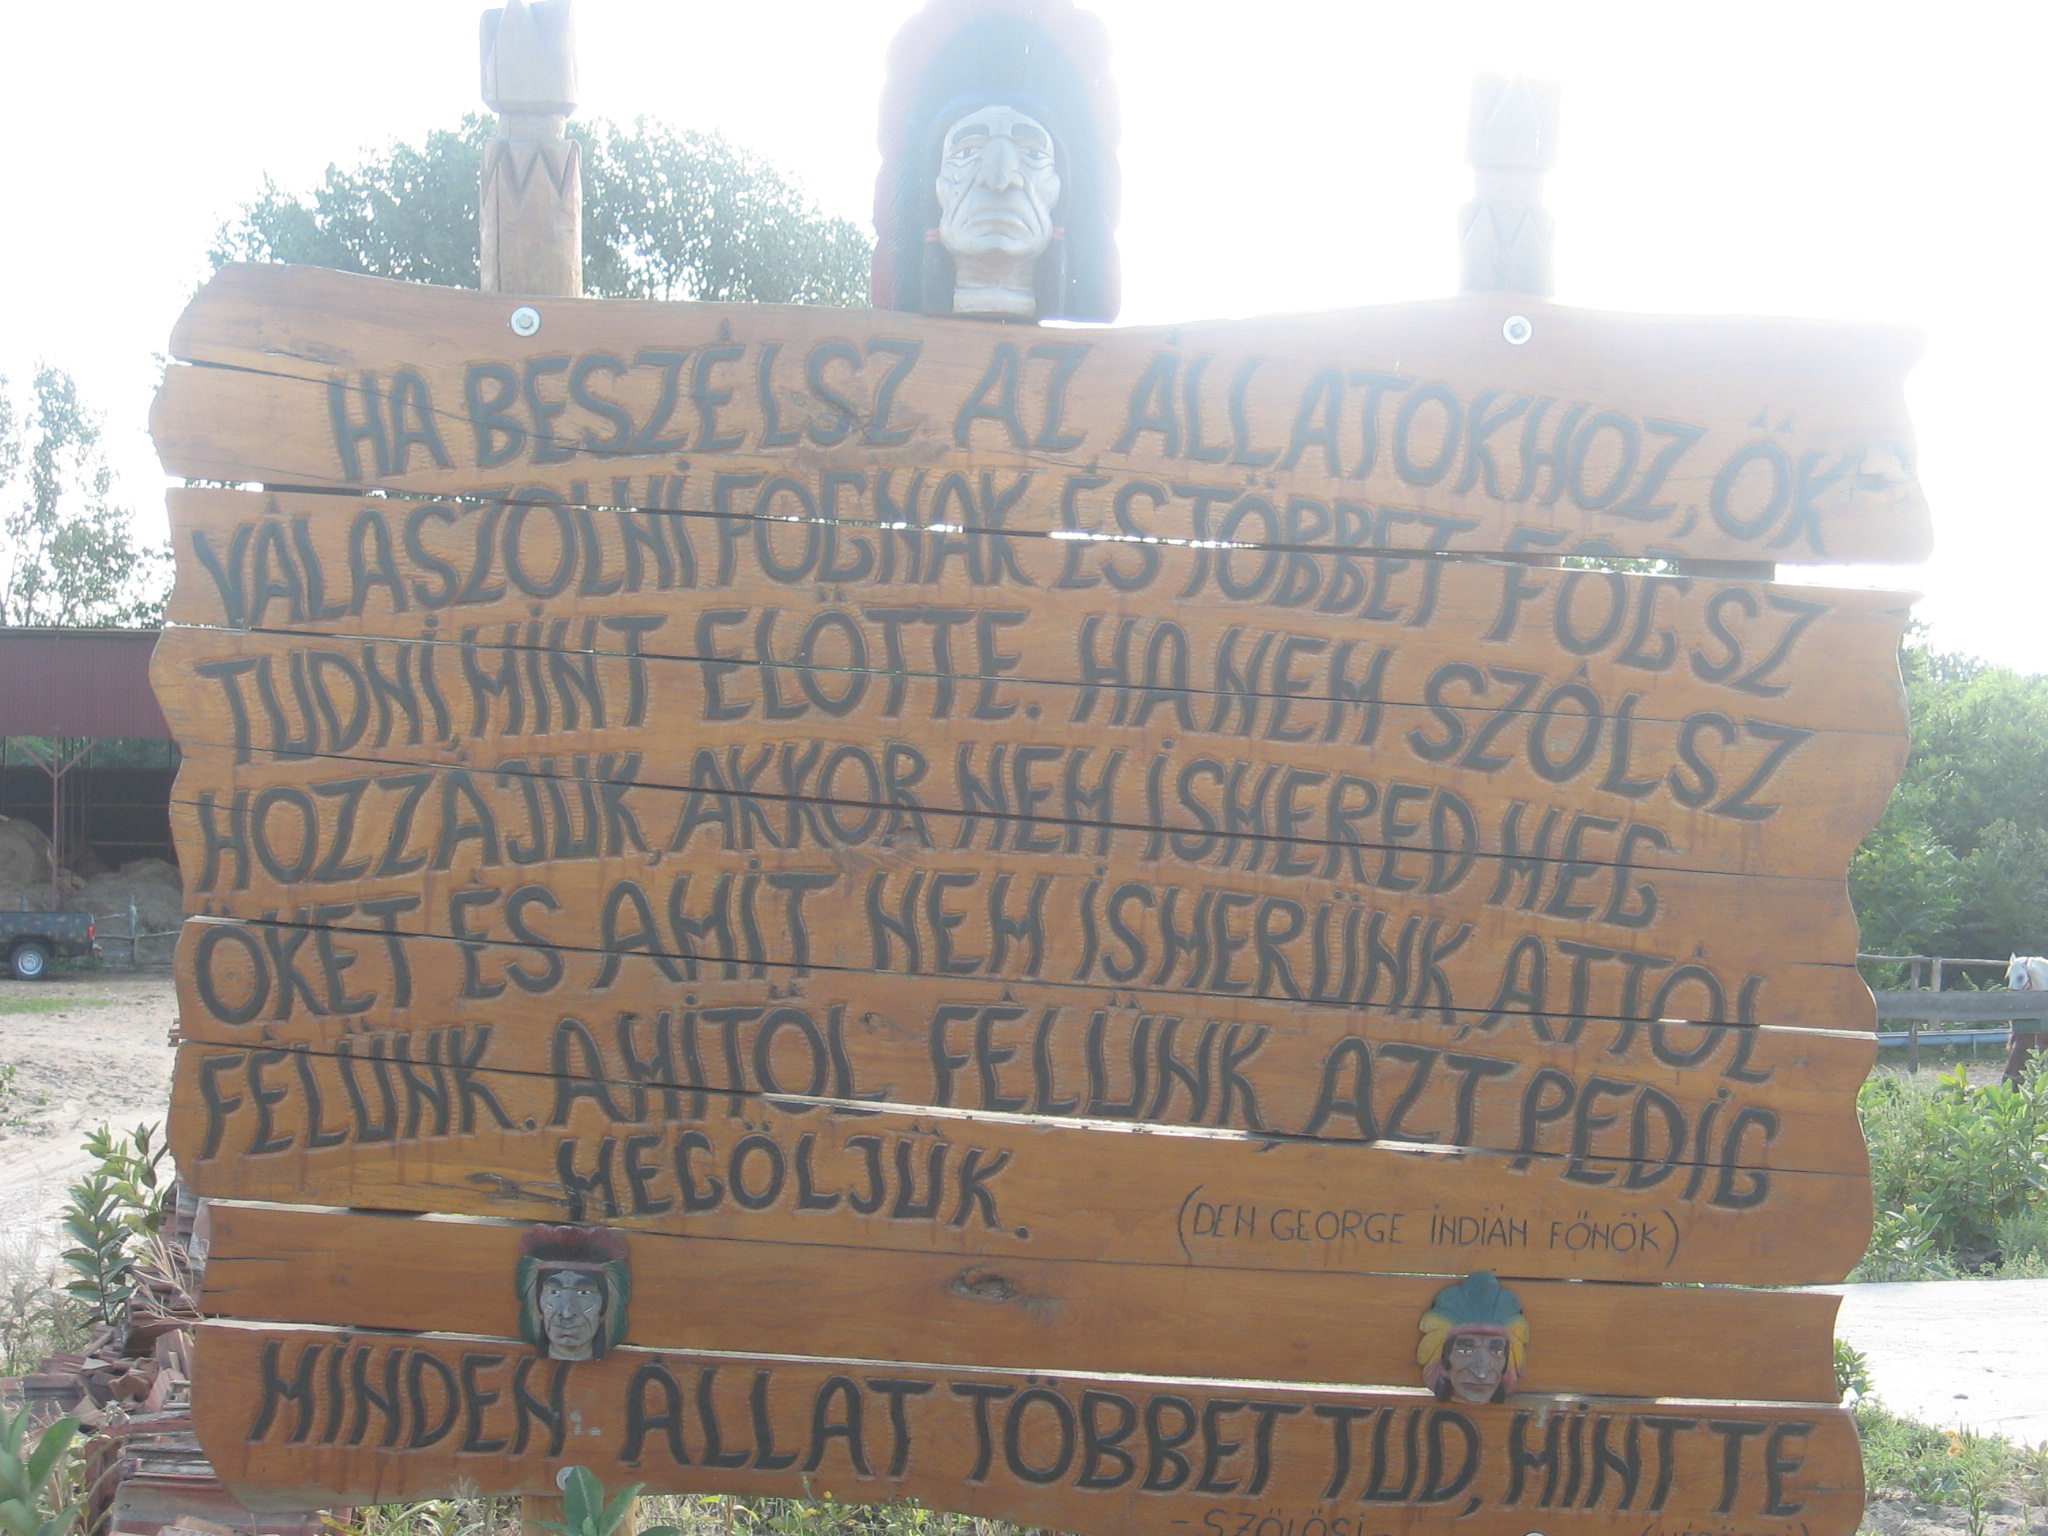 HA BESZÉLSZ AZ ÁLLATOKHOZ, ŐK
VÁLASZOLNI FOGNAK ÉS TÖBBET FOGSZ
TUDNI, MINT ELÖTTE. HA NEM SZÓLSZ
HOZZÁJUK, AKKOR NEM ISMERED MEG
ŐKET ÉS AMIT NEM ISMERÜNK, ATTÓL
FÉLÜNK. AMITŐL FÉLÜNK, AZT PEDIG
MEGÖLJÜK.
(DEN GEORGE INDIÁN FŐNÖK)
MINDEN ÁLLAT TÖBBET TUD, MINT TE
- SZÖLÖSI -